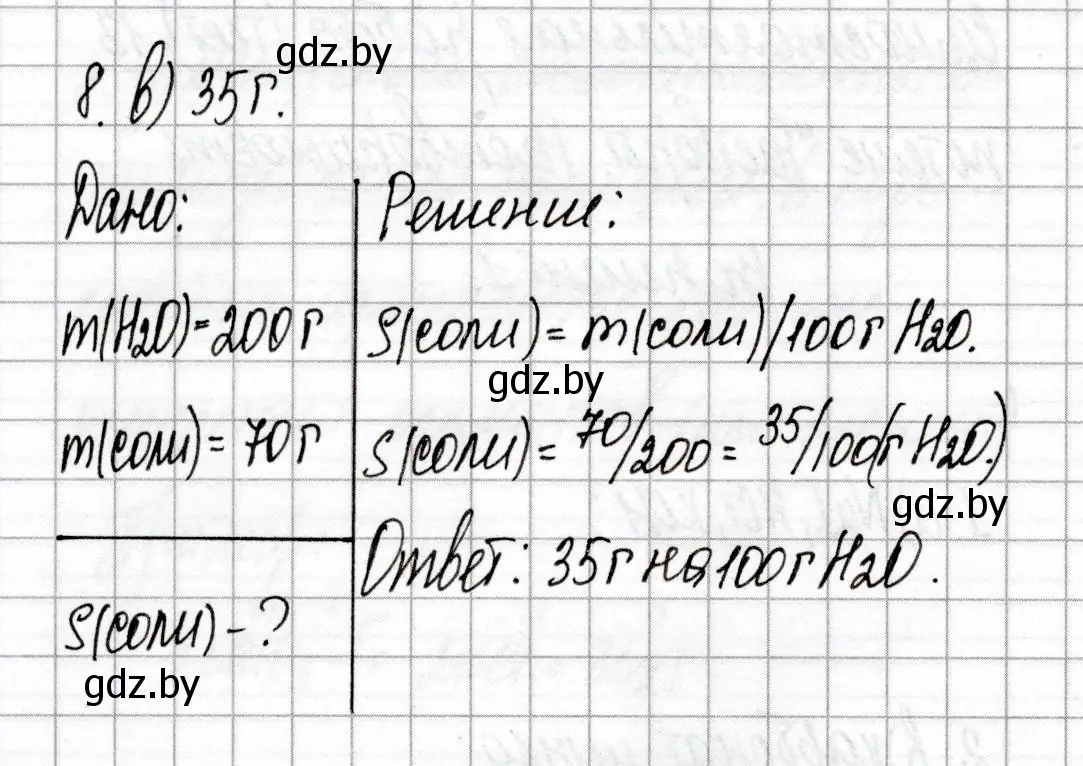 gdz.by
8. в) 35 г.
Дано:
m(H2O)=200 г
m(соли)= 70 г
S(соли) - ?
gdz.by
Решение:
S(соли)= m(соли)/100 г H2O.
gdz.by
S(соли)= 70/200 = 35/100(г H2O.)
gdz.by
Ответ: 35 г на 100 г H2O.